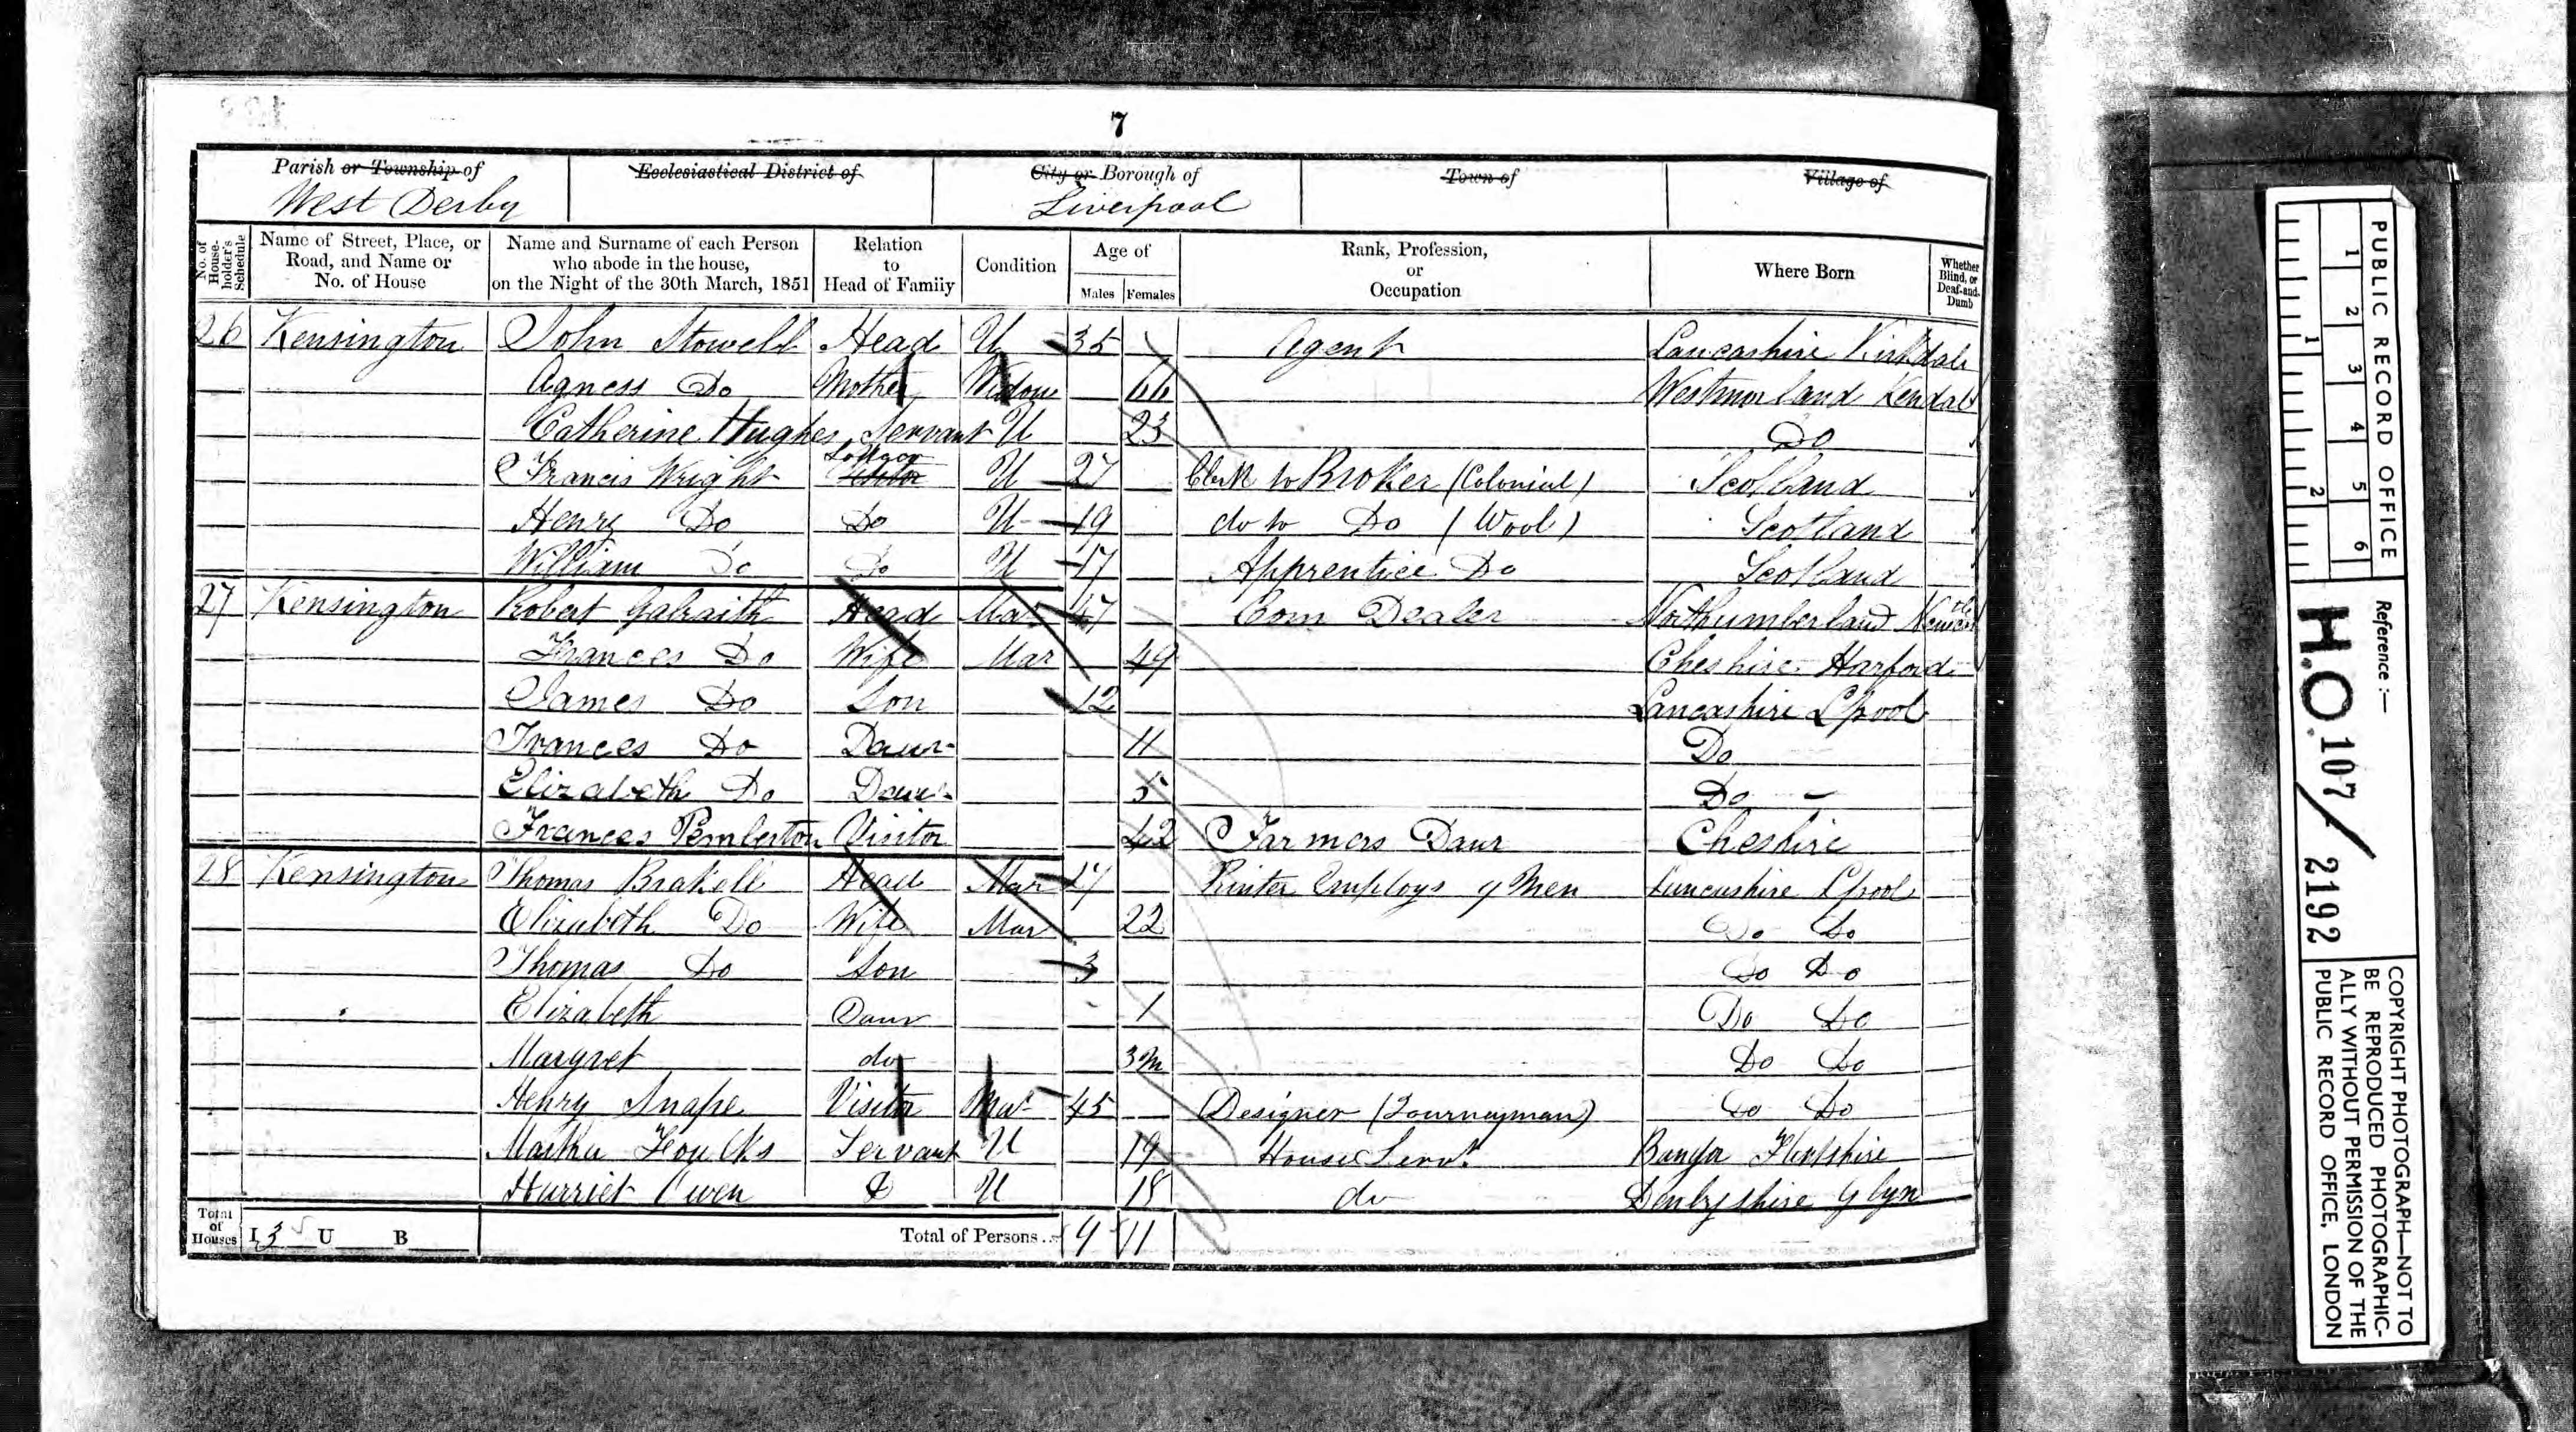 7
Parish or Township of
West Derby
Ecclesiastical District of
City or Borough of
Liverpool
Town of
Village of
No. of House-holder's Schedule
Name of Street, Place, or Road, and Name or No. of House
Name and Surname of each Person who abode in the house, on the Night of the 30th March, 1851
Relation to Head of Family
Condition
Age of
Males Females
Rank, Profession, or Occupation
Where Born
Whether Blind, or Deaf-and-Dumb
26 Kensington John Stowell Head U 35 Agent Lancashire Kirkdale
Agness Do Mother Widow 66 Westmorland Kendal
Catherine Hughes Servant U 23 Do
Francis Wright Lodger Visitor U 27 Clerk to Broker (Colonial) Scotland
Henry Do Do U 19 do to Do (Wool) Scotland
William Do Do U 17 Apprentice Do Scotland
27 Kensington Robert Galraith Head Mar 47 Corn Dealer Northumberland
Frances Do Wife Mar 49 Cheshire Harford
James Do Son 12 Lancashire Lpool
Frances Do Daur 11 Do
Elizabeth Do Daur 5 Do
Frances Pemberton Visitor 42 Farmers Daur Cheshire
28 Kensington Thomas Brakell Head Mar 27 Printer Employs 9 Men Lancashire Lpool
Elizabeth Do Wife Mar 22 Do Do
Thomas Do Son 3 Do Do
Elizabeth Daur 1 Do Do
Margret do 3m Do Do
Henry Snape Visitor Mar 45 Designer (Journeyman) Do Do
Martha Foulks Servant U 19 House Servt Bangor Flintshire
Harriet Owen Do U 18 do Denbyshire Glyn
Total of Houses I 3 U B Total of Persons... 9 11
PUBLIC RECORD OFFICE
1 2 3 4 5 6
1 2
Reference :—
H.O. 107 / 2192
COPYRIGHT PHOTOGRAPH—NOT TO
BE REPRODUCED PHOTOGRAPHIC-
ALLY WITHOUT PERMISSION OF THE
PUBLIC RECORD OFFICE, LONDON